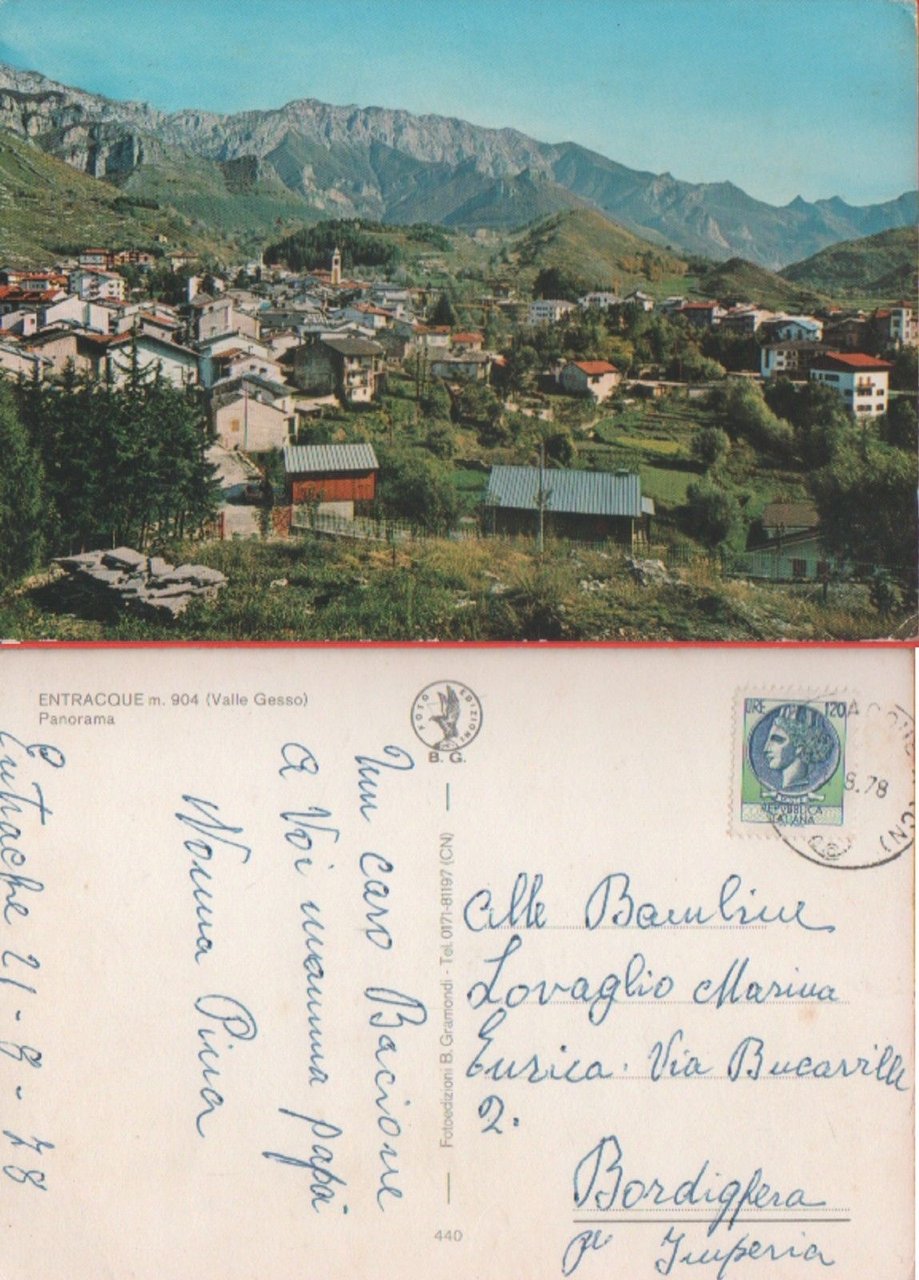 ENTRACQUE m. 904 (Valle Gesso)
Panorama
FOTO EDIZIONI
B. G.
LIRE 120
REPUBBLICA
ITALIANA
8.78
(CN)
Un caro Bacione
a Voi mamma papà
Nonna Pina
Entrache 21-8-78
Fotoedizioni B. Gramondi - Tel. 0171-81197 (CN)
440
Alle Bambine
Lovaglio Marina
Enrica. Via Bucaville
2.
Bordighera
pr Imperia